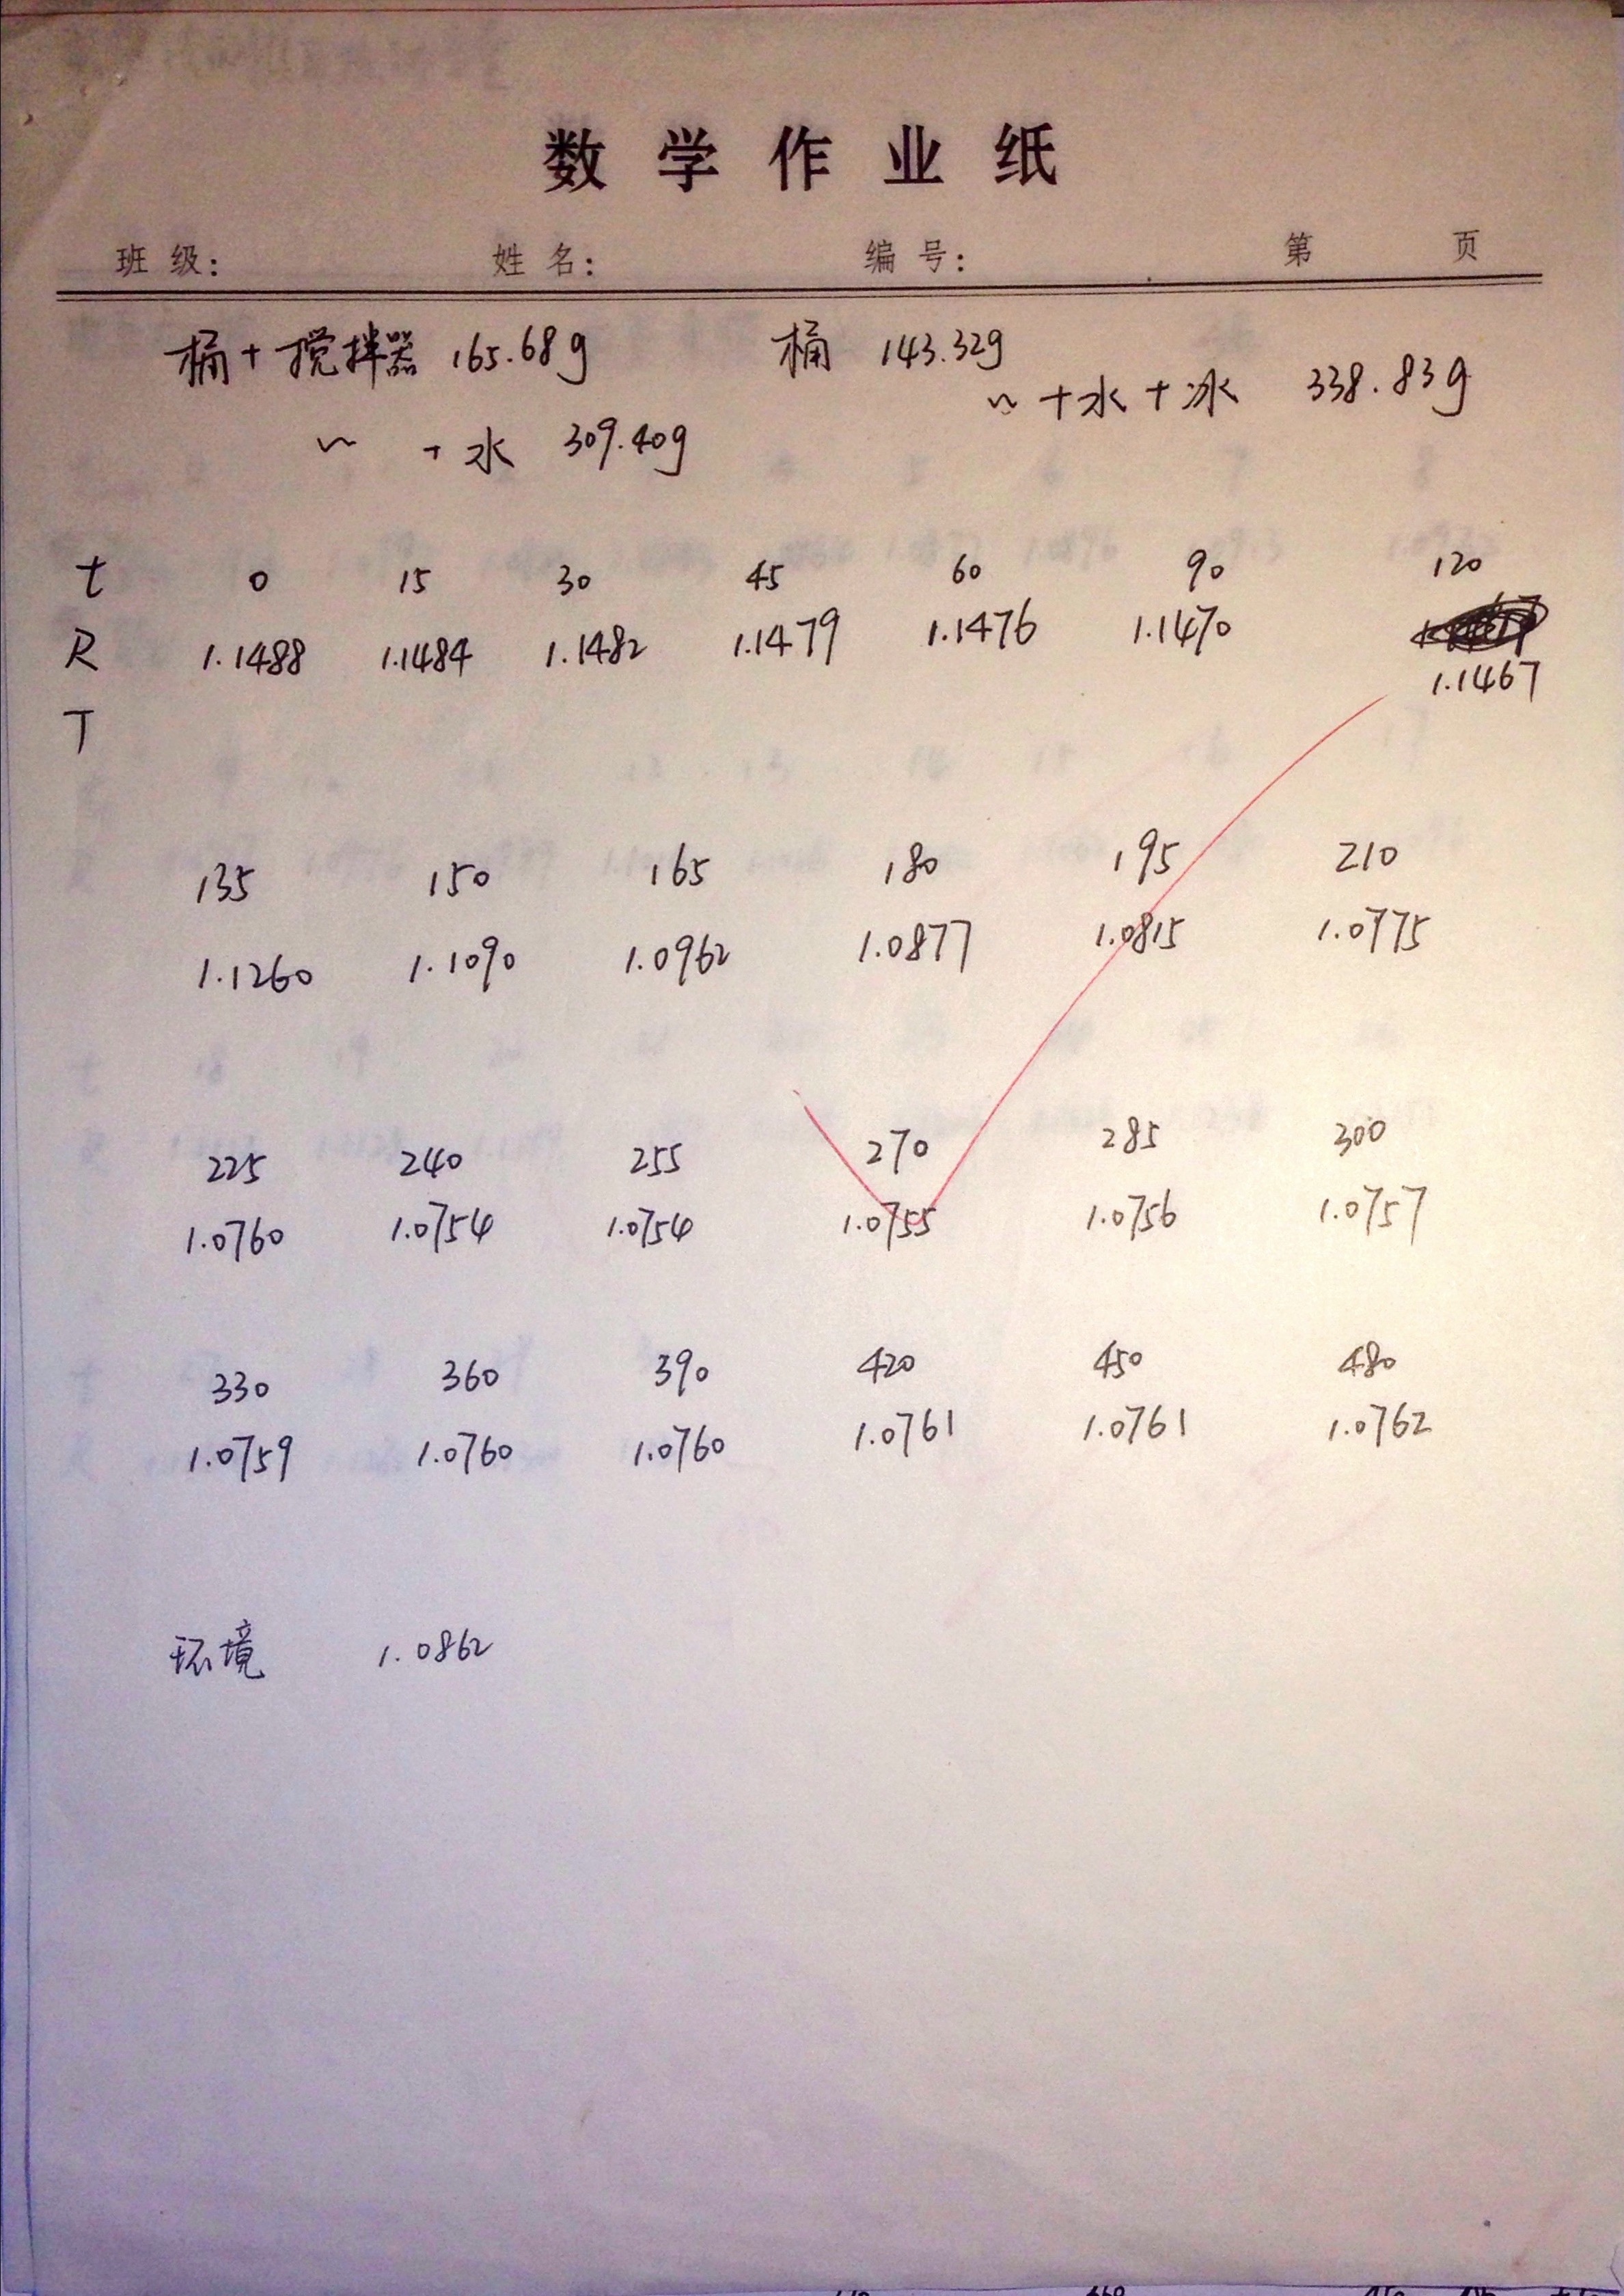 数学作业纸
班级： 姓名： 编号： 第 页
桶+搅拌器 165.68g 桶 143.32g
~ +水 309.40g ~ +水+冰 338.83g
t 0 15 30 45 60 90 120
R 1.1488 1.1484 1.1482 1.1479 1.1476 1.1470 1.1467
T
135 150 165 180 195 210
1.1260 1.1090 1.0962 1.0877 1.0815 1.0775
225 240 255 270 285 300
1.0760 1.0754 1.0754 1.0755 1.0756 1.0757
330 360 390 420 450 480
1.0759 1.0760 1.0760 1.0761 1.0761 1.0762
环境 1.0862